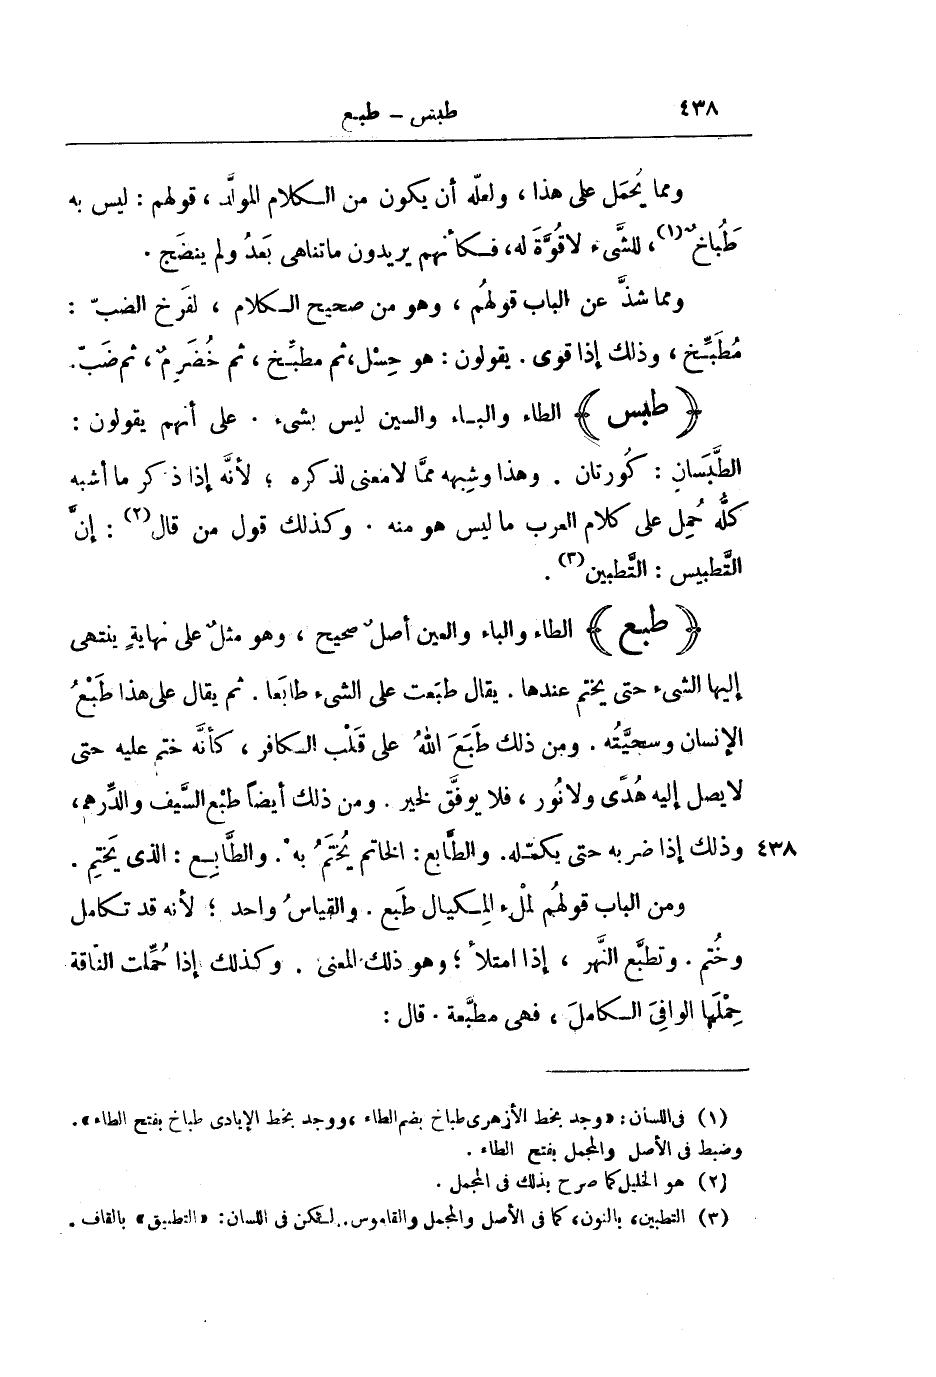 ٤٣٨ طبس – طبع
ومما يُحمَل على هذا ، ولعلّه أن يكون من الـكلام المولَّد ، قولهم : ليس به
طَُباخٌ(١)، للشَّىء لا قُوَّةَ له، فـكأنهم يريدون ما تناهى بَعدُ ولم ينضَج .
ومما شذَّ عن الباب قولهُم ، وهو من صحيح الـكلام ، لفَرخ الضبّ :
مُطَبِّخ ، وذلك إذا قوى . يقولون : هو حِسْل، ثم مطبِّخ ، ثم خُضَرِمٌ ، ثم ضَبّ.
﴿ طبس ﴾ الطاء والبـاء والسين ليس بشىء . على أنهم يقولون :
الطَّبَسانِ : كُورتان . وهذا وشِبهه ممَّا لا معنى لذكره ؛ لأنَّه إذا ذكر ما أشبه
كلُّه حُمِل على كلام العرب ما ليس هو منه . وكذلك قول من قال(٢) : إنَّ
التَّطبيس : التَّطبين(٣) .
﴿ طبع ﴾ الطاء والباء والعين أصلٌ صحيح ، وهو مثلٌ على نهايةٍ ينتهى
إليها الشىء حتى يختم عندها . يقال طبَعت على الشىء طابَعا . ثم يقال على هذا طَبْعُ
الإنسان وسجيَّتُه . ومِن ذلك طَبَعَ اللهُ على قَلْب الـكافر ، كأنَّه ختم عليه حتى
لا يصل إليه هُدًى ولا نُور ، فلا يوفَّق لخير . ومن ذلك أيضاً طبْع السَّيف والدِّرهم،
٤٣٨ وذلك إذا ضربه حتى يكمّـله. والطَّابع: الخاتم يُختَمُ به. والطَّابِـع : الذى يَختِم .
ومن الباب قولهُم لمْلءِ المِـكيال طَبع . والقياسُ واحد ؛ لأنه قد تـكامل
وخُتم . وتطبَّع النَّهر ، إذا امتلأ ؛ وهو ذلك المعنى . وكذلك إذا حُمِّلت النّاقة
حِمْلَها الوافِىَ الـكاملَ ، فهى مطبَّعة . قال :
(١) فى اللسان: «وجد بخط الأزهرى طباخ بضم الطاء ، ووجد بخط الإيادى طباخ بفتح الطاء».
وضبط فى الأصل والمجمل بفتح الطاء .
(٢) هو الخليل كما صرح بذلك فى المجمل .
(٣) التطبين، بالنون، كما فى الأصل والمجمل والقاموس.. لـكن فى اللسان: «التطبيق» بالقاف .